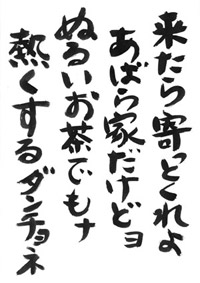 来たら寄っとくれよ
あばら家だけどヨ
ぬるいお茶でもナ
熱くするダンチョネ